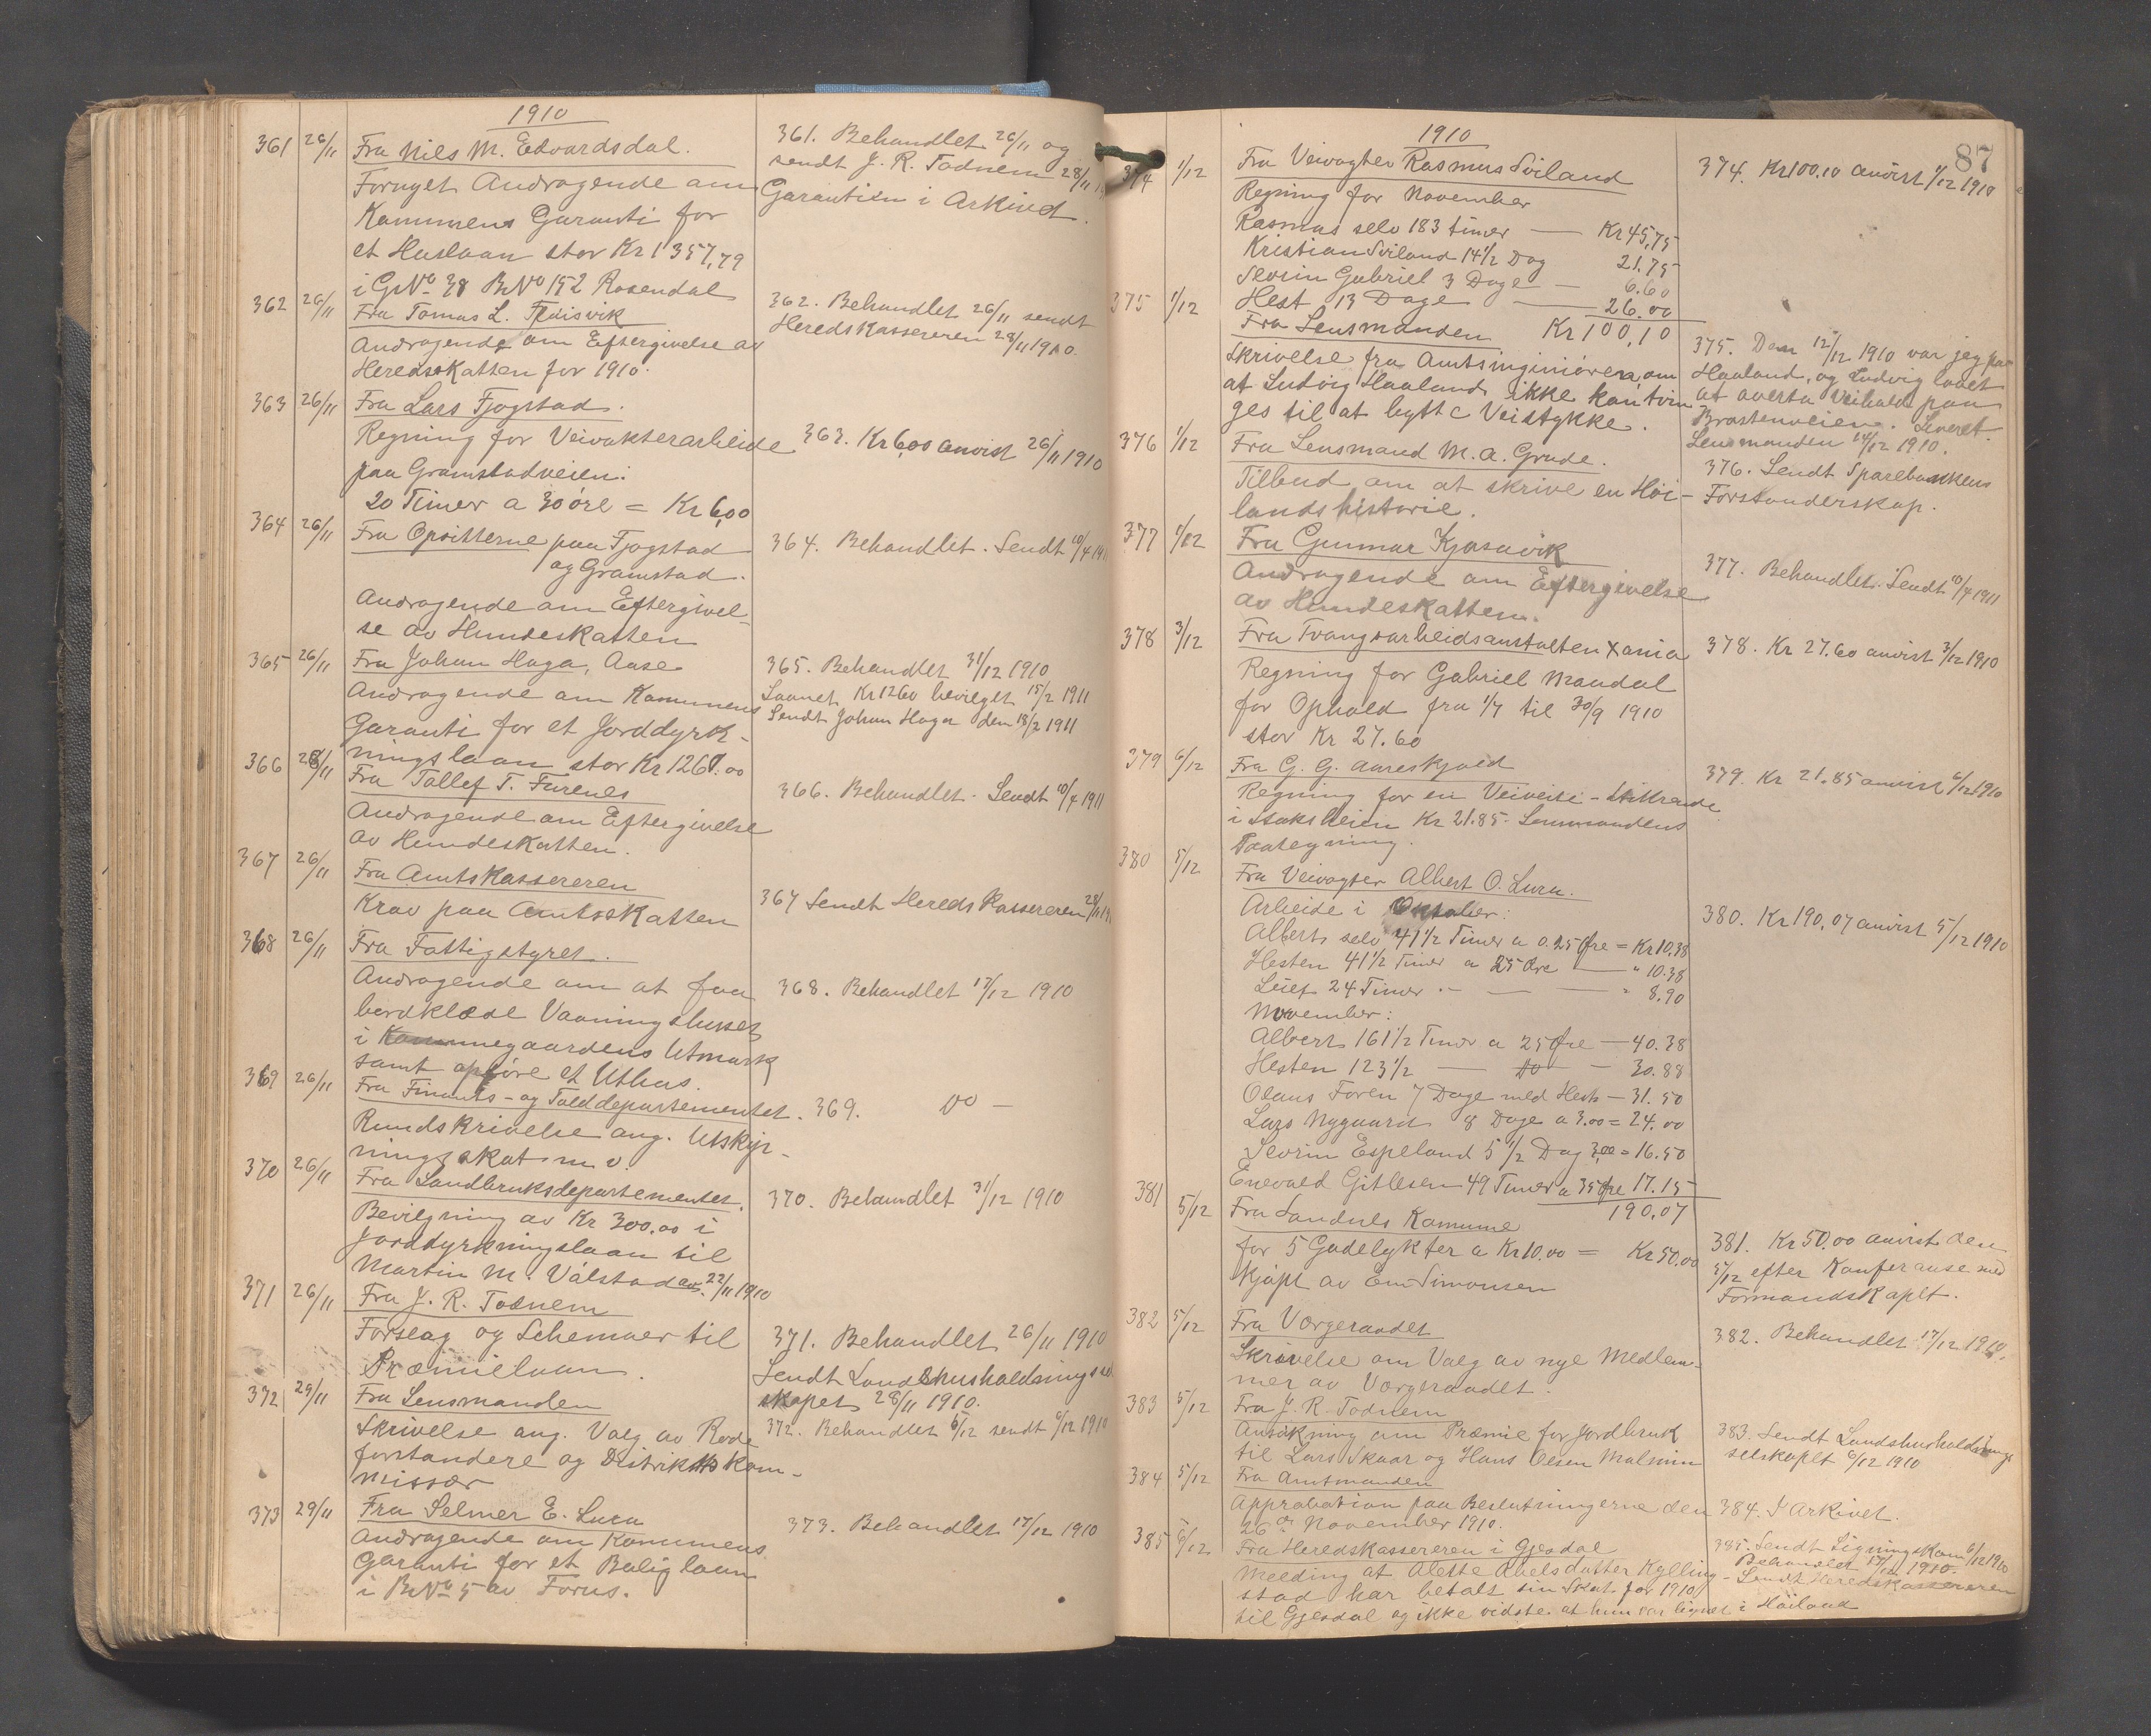 1910
361 26/11 Fra Nils M. Edvardsdal.
Fornyet Andragende om
Kommunens Garanti for
et Huslaan stor Kr 1357,79
i GNo 38 BNo 152 Rosendal
361. Behandlet 26/11 og
sendt J. R. Todnem 28/11
Garantien i Arkivet.
362 26/11 Fra Tomas L.
Andragende om Eftergivelse av
Heredsskatten for 1910.
362. Behandlet 26/11 sendt
Heredskassereren 28/11 1910.
363 26/11 Fra Lars Fjogstad.
Regning for Veivakterarbeide
paa Gramstadveien:
20 Timer a 30 øre = Kr 6,00
363. Kr 6,00 anvist 26/11 1910
364 26/11 Fra Opsitterne paa Fjogstad
og Gramstad.
Andragende om Eftergivel-
se av Hundeskatten
364. Behandlet. Sendt 10/4 1911
365 26/11 Fra Johan Haga, Aase
Andragende om Kommunens
Garanti for et Jorddyrk-
ningslaan stor Kr 1260.00
365. Behandlet 31/12 1910
Laanet Kr 1260 bevilget 15/2 1911
Sendt Johan Haga den 18/2 1911
366 28/11 Fra Tollef T. Furenes
Andragende om Eftergivelse
av Hundeskatten.
366. Behandlet. Sendt 10/4 1911
367 26/11 Fra Amtskassereren
Krav paa Amtsskatten
367 Sendt Heredskassereren 28/11
368 26/11 Fra Fattigstyret.
Andragende om at faa
bordklæde Vaaningshuset
i Kommunegaardens Utmark
samt opføre et Uthus.
368. Behandlet 17/12 1910
369 26/11 Fra Finants- og Tolddepartementet.
Rundskrivelse ang. Utskip-
ningsskat m. v.
369. Do —
370 26/11 Fra Landbruksdepartementet.
Bevilgning av Kr 300.00 i
Jorddyrkningslaan til
Martin M. Válstad av 22/11 1910
370. Behandlet 31/12 1910
371 26/11 Fra J. R. Todnem
Forslag og Schemaer til
Præmielaan.
371. Behandlet 26/11 1910
Sendt Landhusholdningssel
skapet 28/11 1910.
372 29/11 Fra Lensmanden
Skrivelse ang. Valg av Rode
forstandere og Distriktskom-
missær
372. Behandlet 6/12 sendt 6/12 1910
373 29/11 Fra Selmer E. Lura
Andragende om Kommunens
Garanti for et Boliglaan
i BNo 5 av Forus.
373. Behandlet 17/12 1910
87
1910
374 1/12 Fra Veivogter Rasmus Sviland
Regning for November
Rasmus selv 183 timer — Kr 45,75
Kristian Sviland 14 1/2 Dag 21.75
Sevrin Gabriel 3 Dage — 6.60
Hest 13 Dage — 26.00
Kr 100,10
374. Kr 100.10 anvist 1/12 1910
375 1/12 Fra Lensmanden
Skrivelse fra Amtsingeniøren, om
at Ludvig Haaland ikke kan tvin
ges til at bytte Veistykke.
375. Den 12/12 1910 var jeg paa
Haaland, og Ludvig lovet
at overta Veihald paa
Brostenveien. Leveret
Lensmanden 14/12 1910.
376 1/12 Fra Lensmand M. A. Grude.
Tilbud om at skrive en Høi-
landshistorie.
376. Sendt Sparebankens
Forstanderskap.
377 1/12 Fra Gunnar Kjosavik
Andragende om Eftergivelse
av Hundeskatten.
377. Behandlet. Sendt 10/4 1911
378 3/12 Fra Tvangsarbeidsanstalten Xania
Regning for Gabriel Mandal
for Ophold fra 1/7 til 30/9 1910
stor Kr 27.60
378. Kr 27.60 anvist 3/12 1910
379 6/12 Fra G. G. Aareskjold
Regning for en Veiveite-
i Stokkeheien Kr 21.85. Lensmandens
Paategning.
379. Kr 21.85 anvist 6/12 1910
380 5/12 Fra Veivogter Albert O. Lura.
Arbeide i Oktober:
Albert selv 41 1/2 Timer a 0.25 Øre = Kr 10.38
Hesten 41 1/2 Timer a 25 Øre — " 10.38
Leief 24 Timer — " 8.90
November:
Albert 161 1/2 Timer a 25 Øre — 40.38
Hesten 123 1/2 — Do — 30.88
Olaus Foren 7 Dage med Hest — 31.50
Lars Nygaard 8 Dage a 3.00 = 24.00
Sevrin Espeland 5 1/2 Dag 3,00 = 16.50
Enevald Gitlesen 49 Timer a 35 Øre 17.15
190.07
380. Kr 190.07 anvist 5/12 1910
381 5/12 Fra Sandnes Komune
for 5 Gadelykter a Kr 10.00 = Kr 50.00
Kjøpt av Em Simonsen
381. Kr 50.00 anvist den
5/12 efter Konferanse med
Formandskapet.
382 5/12 Fra Vergeraadet
Skrivelse om Valg av nye Medlem-
mer av Vergeraadet.
382. Behandlet 17/12 1910.
383 5/12 Fra J. R. Todnem
Ansøkning om Præmie for Jordbruk
til Lars Skaar og Hans Olsen Malmin
383. Sendt Landshusholdnings
selskapet 6/12 1910
384 5/12 Fra Amtmanden
Approbation paa Beslutningerne den
26de November 1910.
384. I Arkivet.
385 6/12 Fra Heredskassereren i Gjesdal
Melding at Alette Abelsdatter Kylling-
stad har betalt sin Skat for 1910
til Gjesdal og ikke vidste at hun var lignet i Høiland
385. Sendt Ligningskom 6/12 1910
Behandlet 17/12 1910.
Sendt Heredskassereren